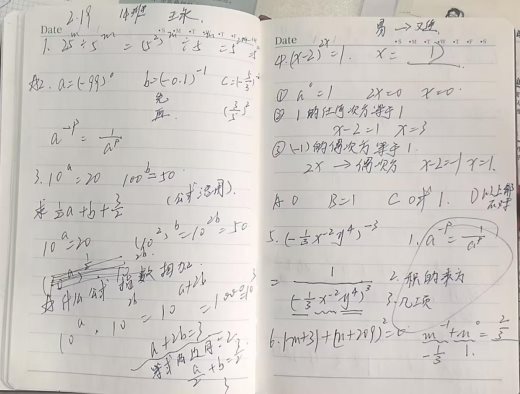 2.19 14班
Date
1. 25^m ÷ 5^m = (5²)^m ÷ 5^m = 5^2m
2. a=(-99)^0 b=(-0.1)^-1 c=(-5/3)^-2
a^-p = 1/a^p
3. 10^a=20 100^b=50
求 1/2a+b+3/2
10^a=20 (10²)^b=10^2b=50
指数相加
10^a · 10^2b = 10^a+2b = 1000=10³
a+2b=3
a/2+b=3/2
易 →
Date
4. (x-2)^2x=1. x=
① a^0=1 2x=0 x=0.
② 1的任何次方等于1
x-2=1 x=3
③ (-1)的偶次方等于1.
2x → 偶次方 x-2=-1 x=1.
A 0 B=1 C 0或1. D 以上都不对
5. (-1/3 x^-2 y^4)^-3 1. a^-p = 1/a^p
= 1/(-1/3 x^-2 y^4)^3 2. 积的乘方
3. 几项
6. |m+3|+(n+209)²=0 m^-1+n^0=2/3
-1/3 1.